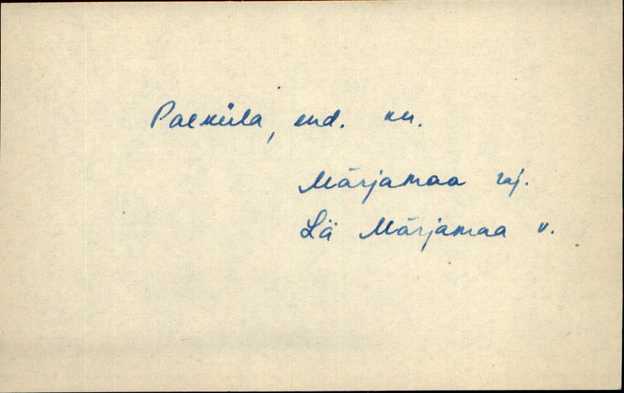 Paeküla, end. kü.
Märjamaa raj.
Lä Märjamaa v.